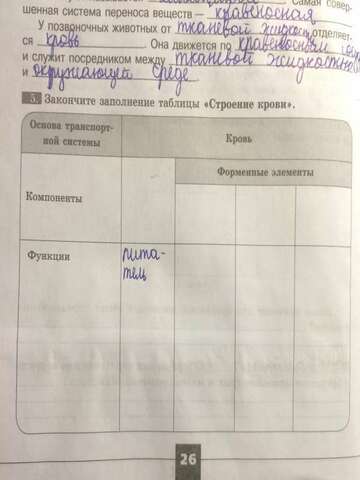 Самая совер-
шенная система переноса веществ – кравеносная
У позвоночных животных от тканевой жидкости отделяет-
ся кровь Она движется по кравеносным
и служит посредником между тканевой жидкостью
и окружающей среде
5. Закончите заполнение таблицы «Строение крови».
Основа транспорт-
ной системы
Кровь
Форменные элементы
Компоненты
Функции
пита-
тел
26